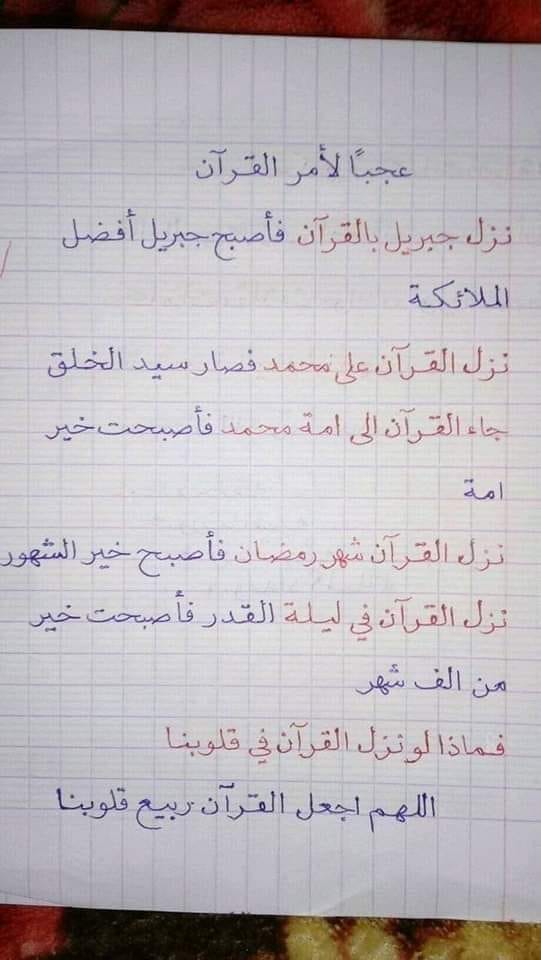 عجبًا لأمر القرآن
نزل جبريل بالقرآن فأصبح جبريل أفضل
الملائكة
نزل القرآن على محمد فصار سيد الخلق
جاء القرآن الى امة محمد فأصبحت خير
امة
نزل القرآن شهر رمضان فأصبح خير الشهور
نزل القرآن في ليلة القدر فأصبحت خير
من الف شهر
فماذا لو نزل القرآن في قلوبنا
اللهم اجعل القرآن ربيع قلوبنا